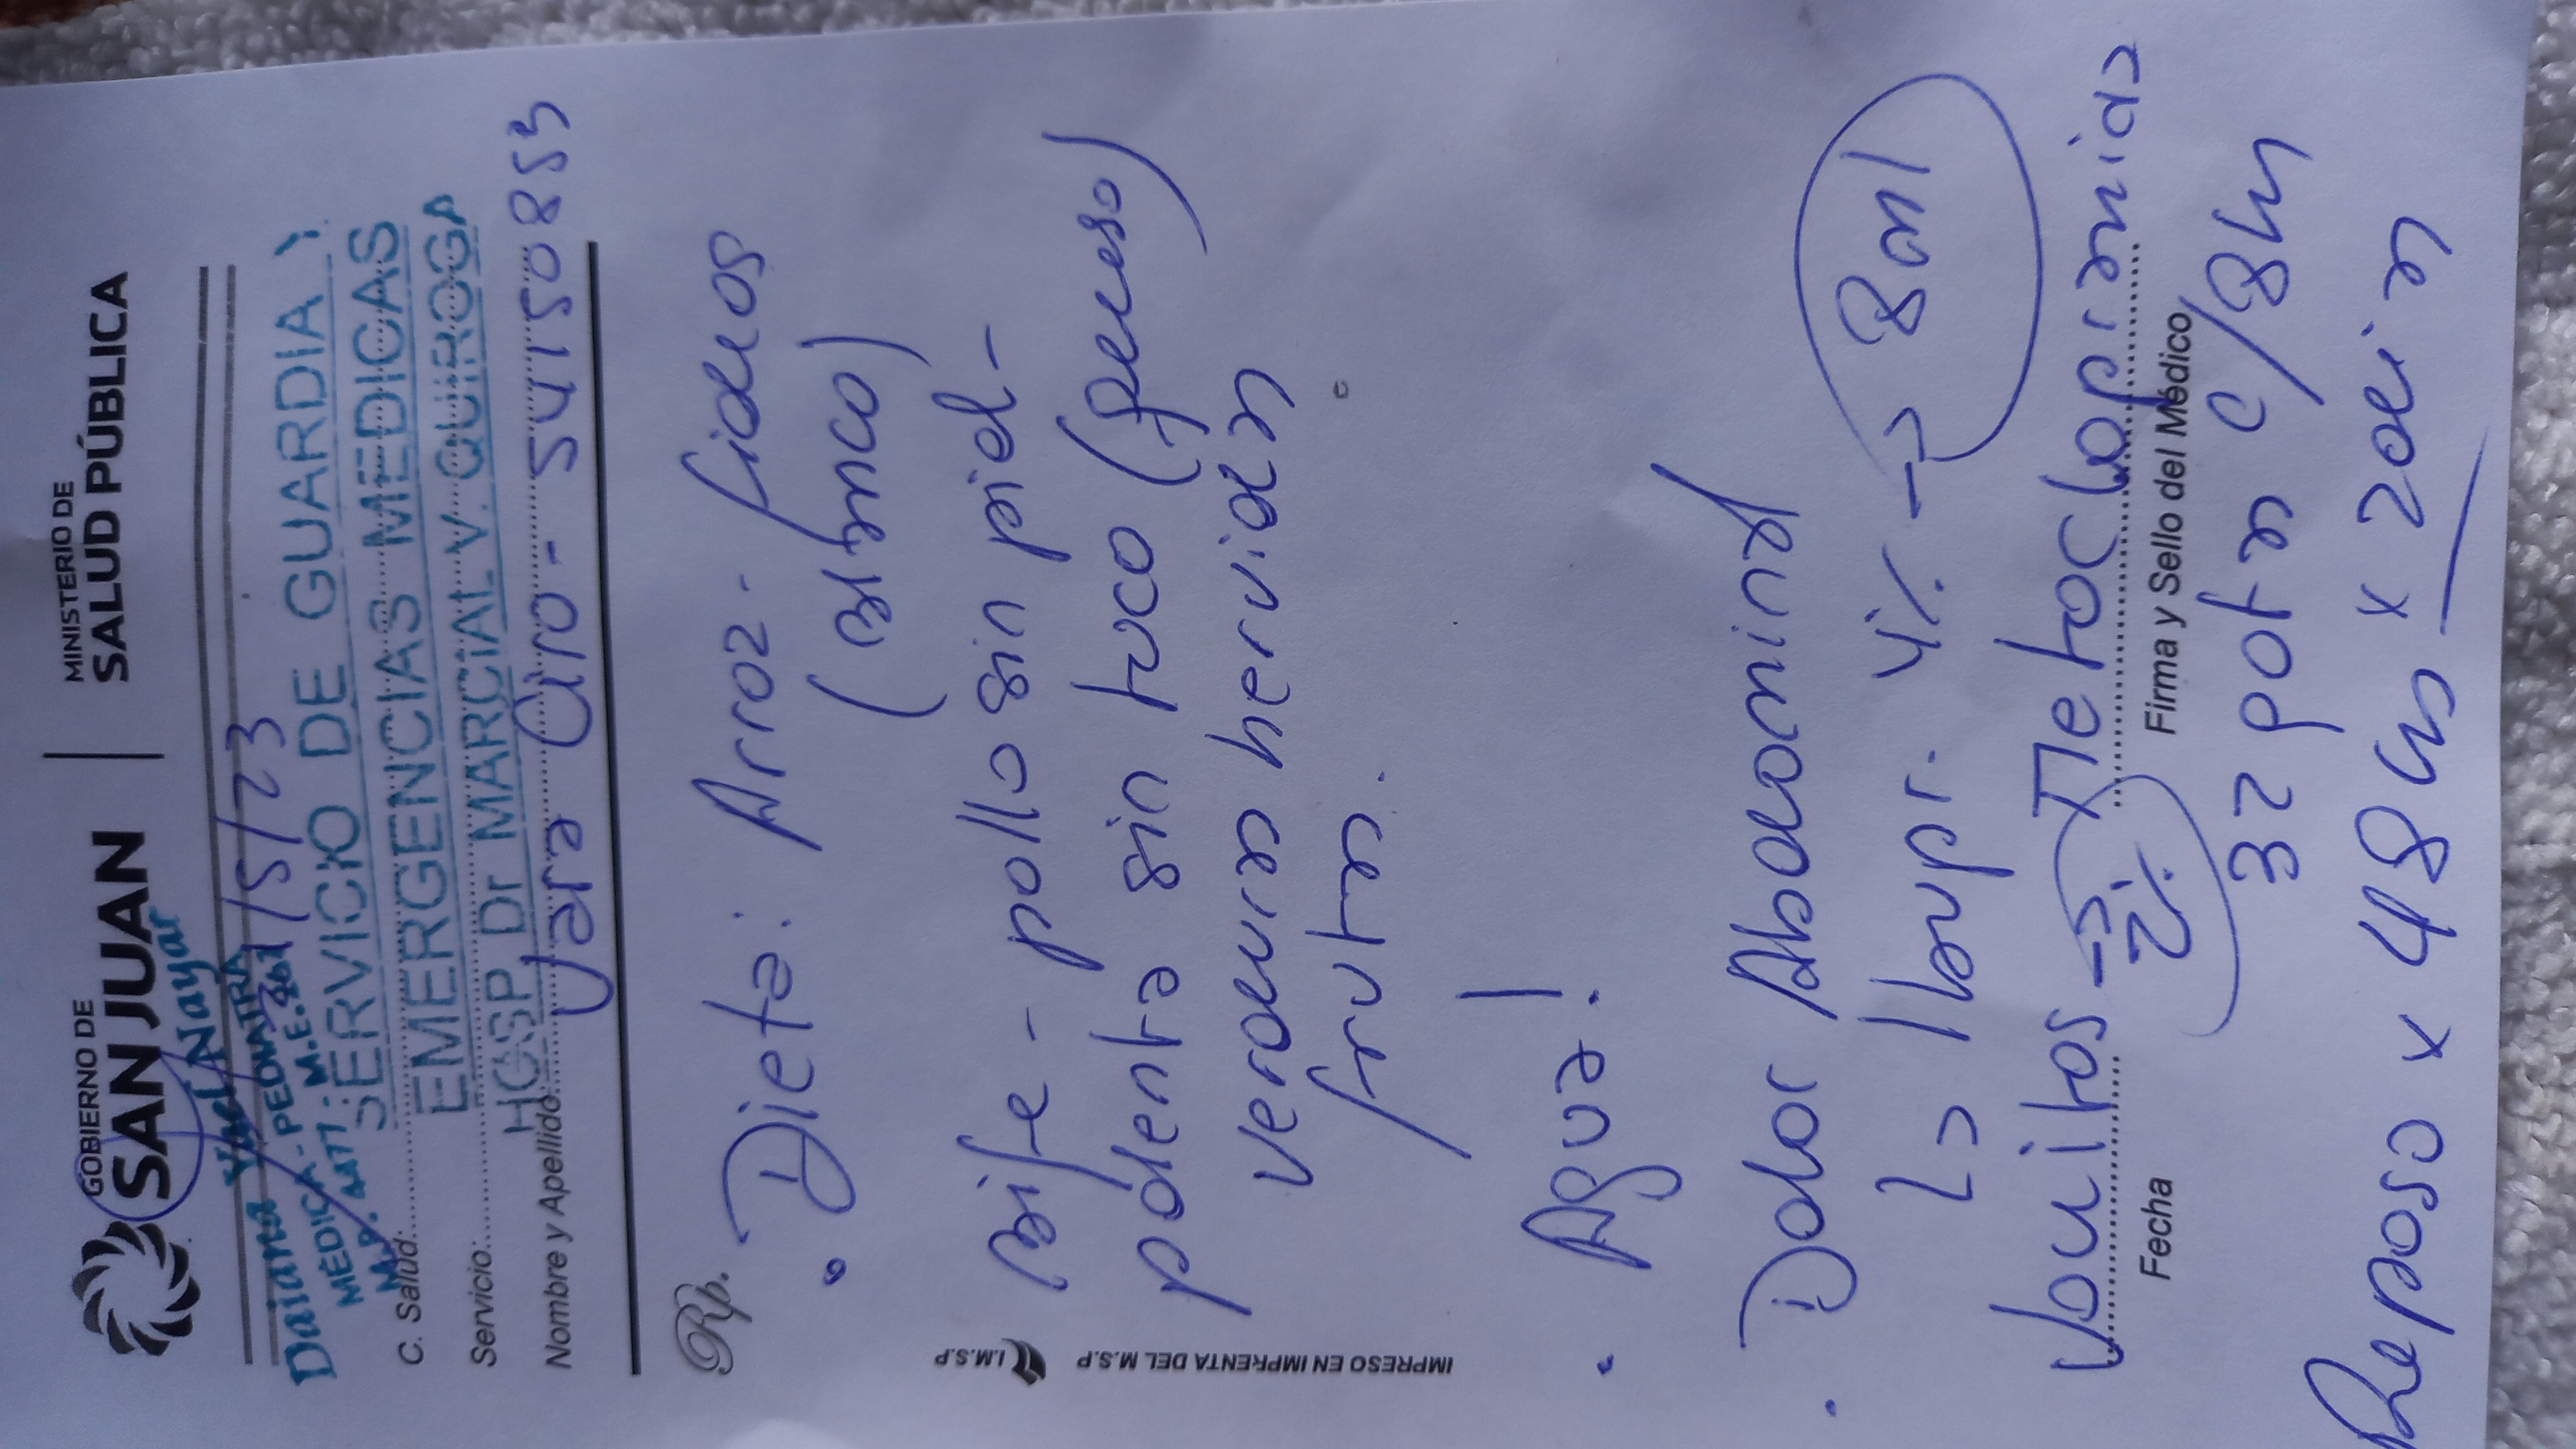 GOBIERNO DE
SAN JUAN
MINISTERIO DE
SALUD PÚBLICA
/5/23
Daiana Yael Nayar
MÉDICA - PEDIATRA
SERVICIO DE GUARDIA Y
EMERGENCIAS MEDICAS
HOSP Dr MARCIAL V. QUIROGA
C. Salud:
Servicio:
Nombre y Apellido: Jara Ciro - 54150853
Rp.
• Dieta: Arroz - fideos
(blanco)
Bife - pollo sin piel -
polenta sin tuco (queso)
verduras hervidas
frutas.
• Agua!
• Dolor Abdominal
↳ Ibupr. 4% → 8ml
Vomitos → Metoclopramida
2%
Fecha
Firma y Sello del Médico
32 gotas c/8hs
Reposo x 48hs x
I.M.S.P
IMPRESO EN IMPRENTA DEL M.S.P